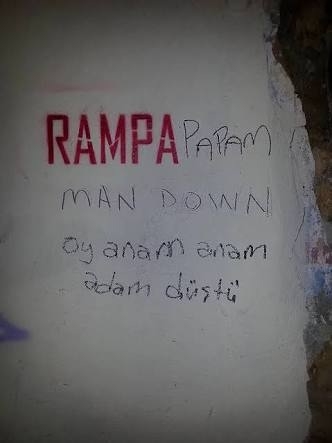 RAMPAPAPAM
MAN DOWN
oy anam anam
adam düştü